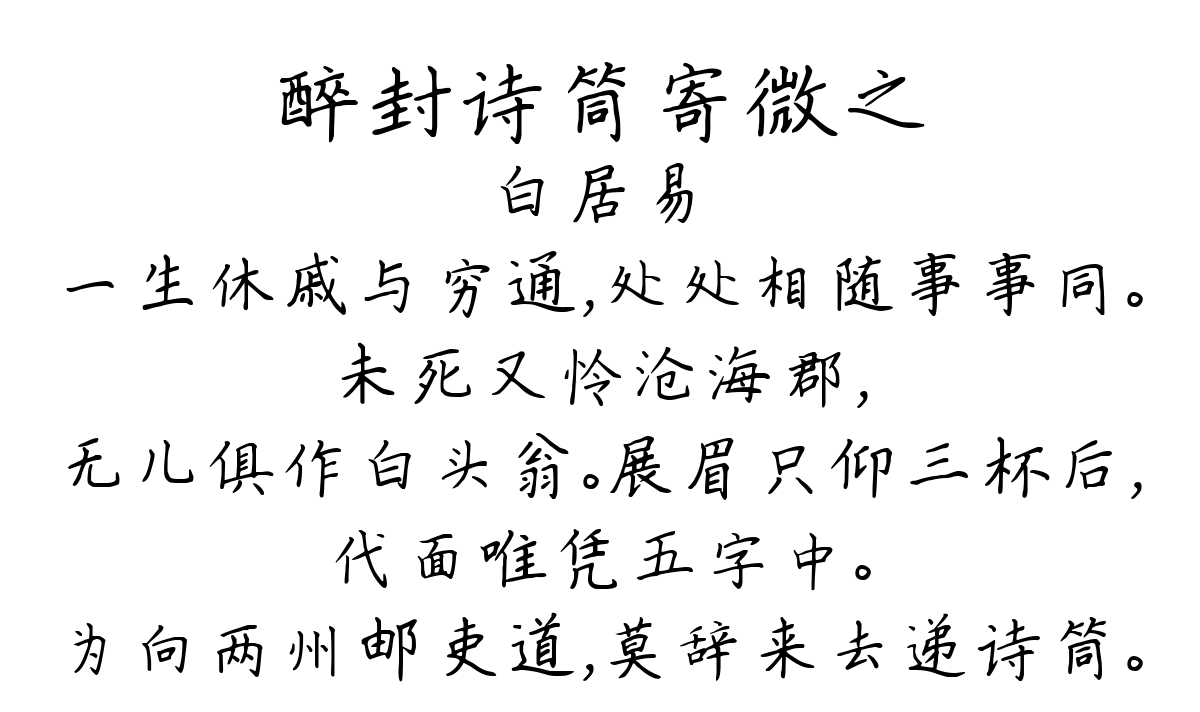 醉封诗筒寄微之
白居易
一生休戚与穷通,处处相随事事同。
未死又怜沧海郡,
无儿俱作白头翁。展眉只仰三杯后,
代面唯凭五字中。
为向两州邮吏道,莫辞来去递诗筒。